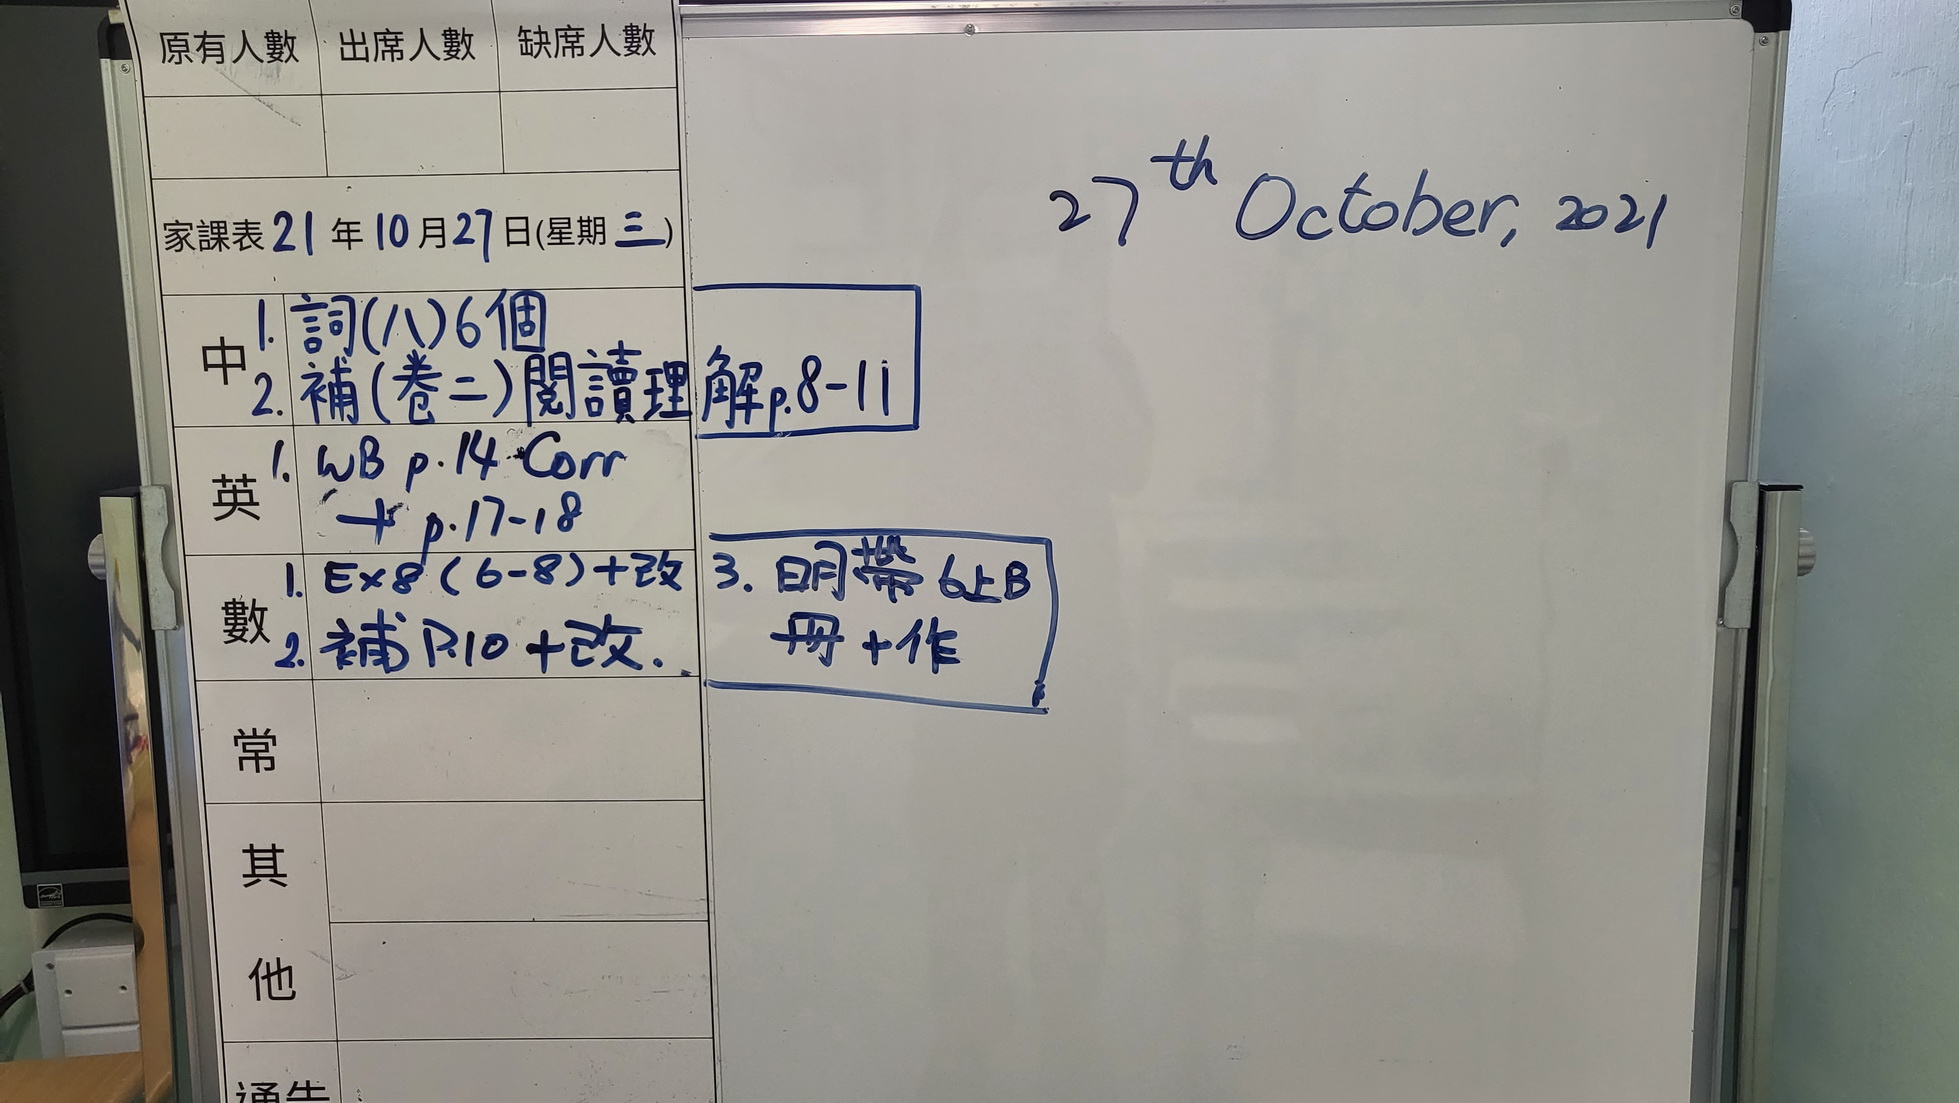 原有人數 出席人數 缺席人數
家課表 21 年 10 月 27 日(星期 三)
27th October, 2021
中
1. 詞(八)6個
2. 補(卷二)閱讀理解p.8-11
英
1. WB p.14 Corr
+ p.17-18
數
1. Ex8 (6-8)+改
2. 補 P.10 +改.
3. 明帶 6上B
冊 + 作
常
其
他
通告